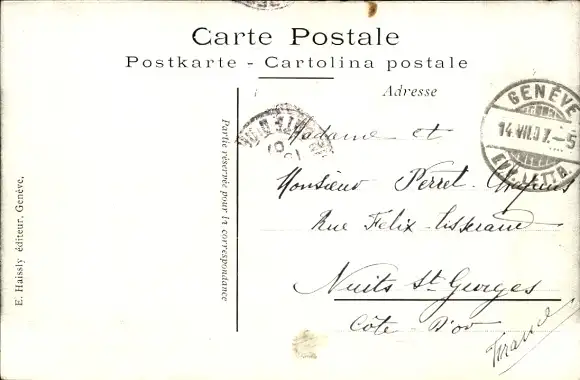 Carte Postale
Postkarte - Cartolina postale
Adresse
GENÈVE
14.VII.07.-5
Partie réservée pour la correspondance
E. Haissly éditeur, Genève,
Madame et
Monsieur Perret
Rue Felix-Tisserand
Nuits St Georges
Côte-D'or
France